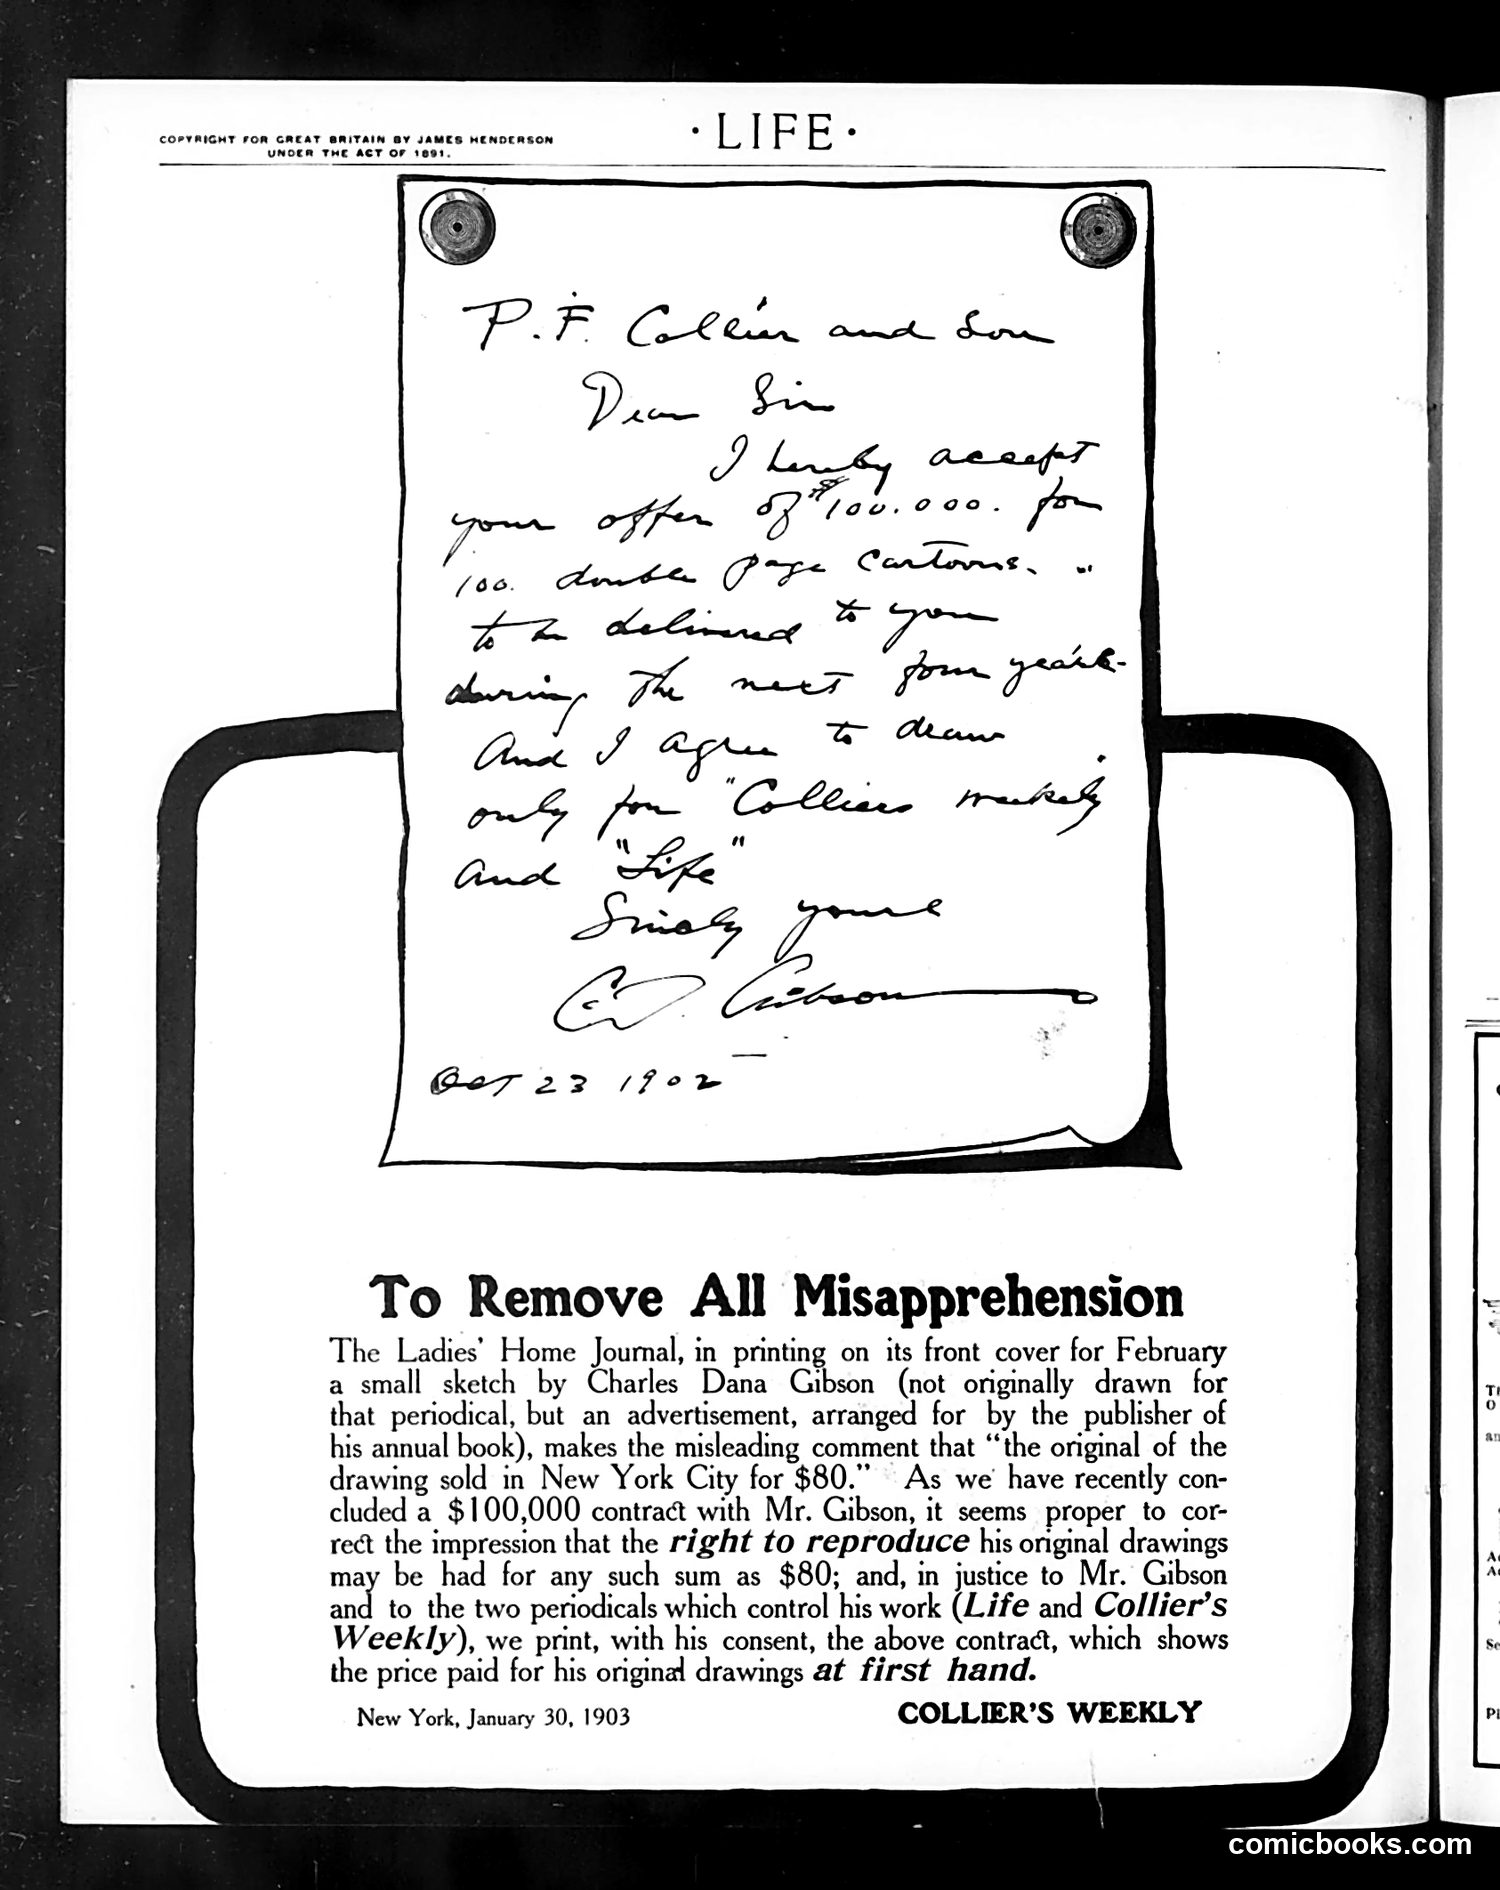 COPYRIGHT FOR GREAT BRITAIN BY JAMES HENDERSON
UNDER THE ACT OF 1891.
· LIFE ·
P. F. Collier and Son
Dear Sir
I hereby accept
your offer of $100.000. for
100. double page cartoons.
to be delivered to you
during the next four years.
And I agree to draw
only for "Colliers weekly
and "Life"
Sincly yours
C D Gibson
Oct 23 1902
To Remove All Misapprehension
The Ladies' Home Journal, in printing on its front cover for February
a small sketch by Charles Dana Gibson (not originally drawn for
that periodical, but an advertisement, arranged for by the publisher of
his annual book), makes the misleading comment that "the original of the
drawing sold in New York City for $80." As we have recently con-
cluded a $100,000 contract with Mr. Gibson, it seems proper to cor-
rect the impression that the right to reproduce his original drawings
may be had for any such sum as $80; and, in justice to Mr. Gibson
and to the two periodicals which control his work (Life and Collier's
Weekly), we print, with his consent, the above contract, which shows
the price paid for his original drawings at first hand.
New York, January 30, 1903
COLLIER'S WEEKLY
comicbooks.com